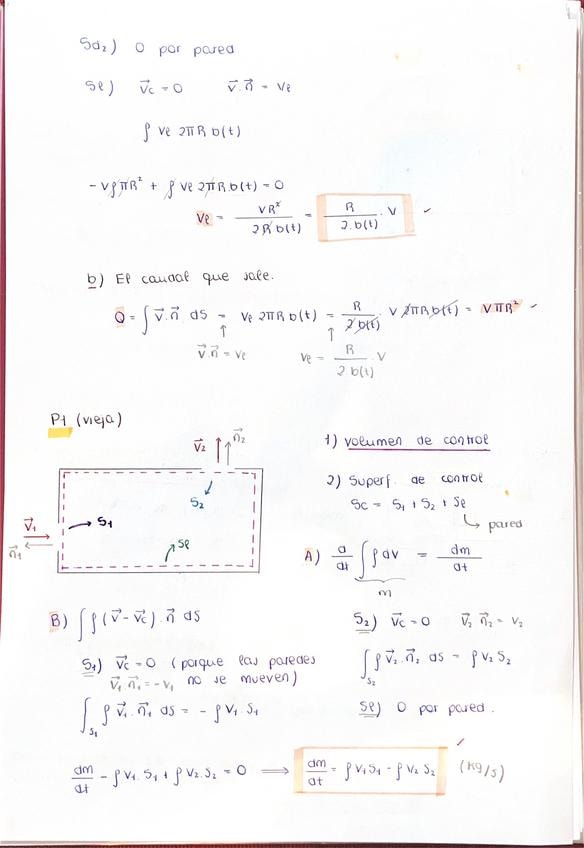 Sd₂) 0 por pared
Sl) v⃗c = 0 v⃗.n⃗ = Vl
ρ Vl 2πR b(t)
-VρπR² + ρ Vl 2πR b(t) = 0
Vl = VR² / 2R b(t) = R / 2.b(t) . V ✓
b) El caudal que sale.
Q = ∫ v⃗.n⃗ dS = Vl 2πR b(t) = R / 2 b(t) . V 2πR b(t) = VπR² ✓
↑ v⃗.n⃗ = Vl ↑ Vl = R / 2 b(t) . V
P1 (vieja)
v⃗₂ n⃗₂
S₂
v⃗₁ S₁
n⃗₁
Sl
1) Volumen de control
2) Superf. de control
Sc = S₁ + S₂ + Sl
↳ pared
A) d/dt ∫ ρ dV = dm/dt
m
B) ∫ ρ (v⃗ - v⃗c) . n⃗ dS
S₁) v⃗c = 0 (porque las paredes
v⃗₁ n⃗₁ = -v₁ no se mueven)
∫S₁ ρ v⃗₁ . n⃗₁ dS = - ρ V₁ . S₁
S₂) v⃗c = 0 v⃗₂ n⃗₂ = V₂
∫S₂ ρ v⃗₂ . n⃗₂ dS = ρ V₂ S₂
Sl) 0 por pared.
dm/dt - ρ V₁ . S₁ + ρ V₂ . S₂ = 0 ⟹ dm/dt = ρ V₁ S₁ - ρ V₂ S₂ ✓ (Kg/s)